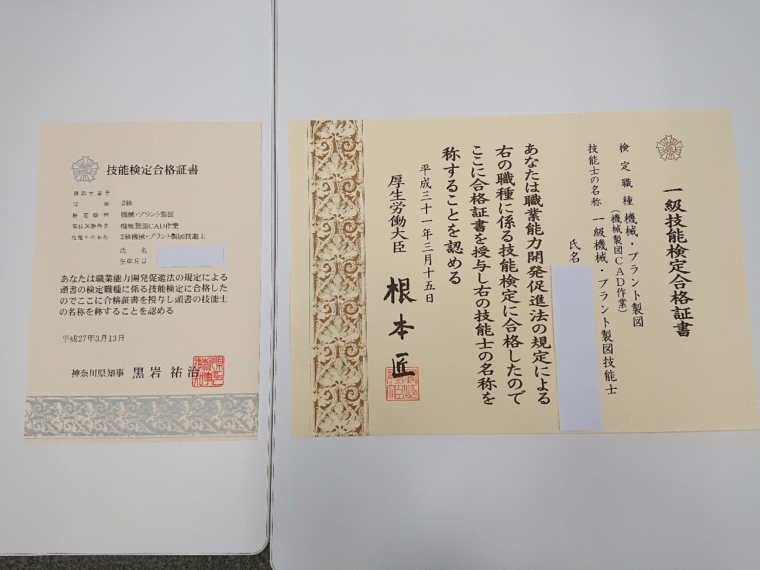 技能検定合格証書
2級
検定職種 機械・プラント製図
機械製図CAD作業
技能士の名称 2級機械・プラント製図技能士
氏名
生年月日
あなたは職業能力開発促進法の規定による
頭書の検定職種に係る技能検定に合格した
のでここに合格証書を授与し頭書の技能士
の名称を称することを認める
平成27年3月13日
神奈川県知事 黒岩 祐治
一級技能検定合格証書
検定職種 機械・プラント製図
(機械製図CAD作業)
技能士の名称 一級機械・プラント製図技能士
氏名
あなたは職業能力開発促進法の規定による
右の職種に係る技能検定に合格したので
ここに合格証書を授与し右の技能士の名称を
称することを認める
平成三十一年三月十五日
厚生労働大臣 根本匠